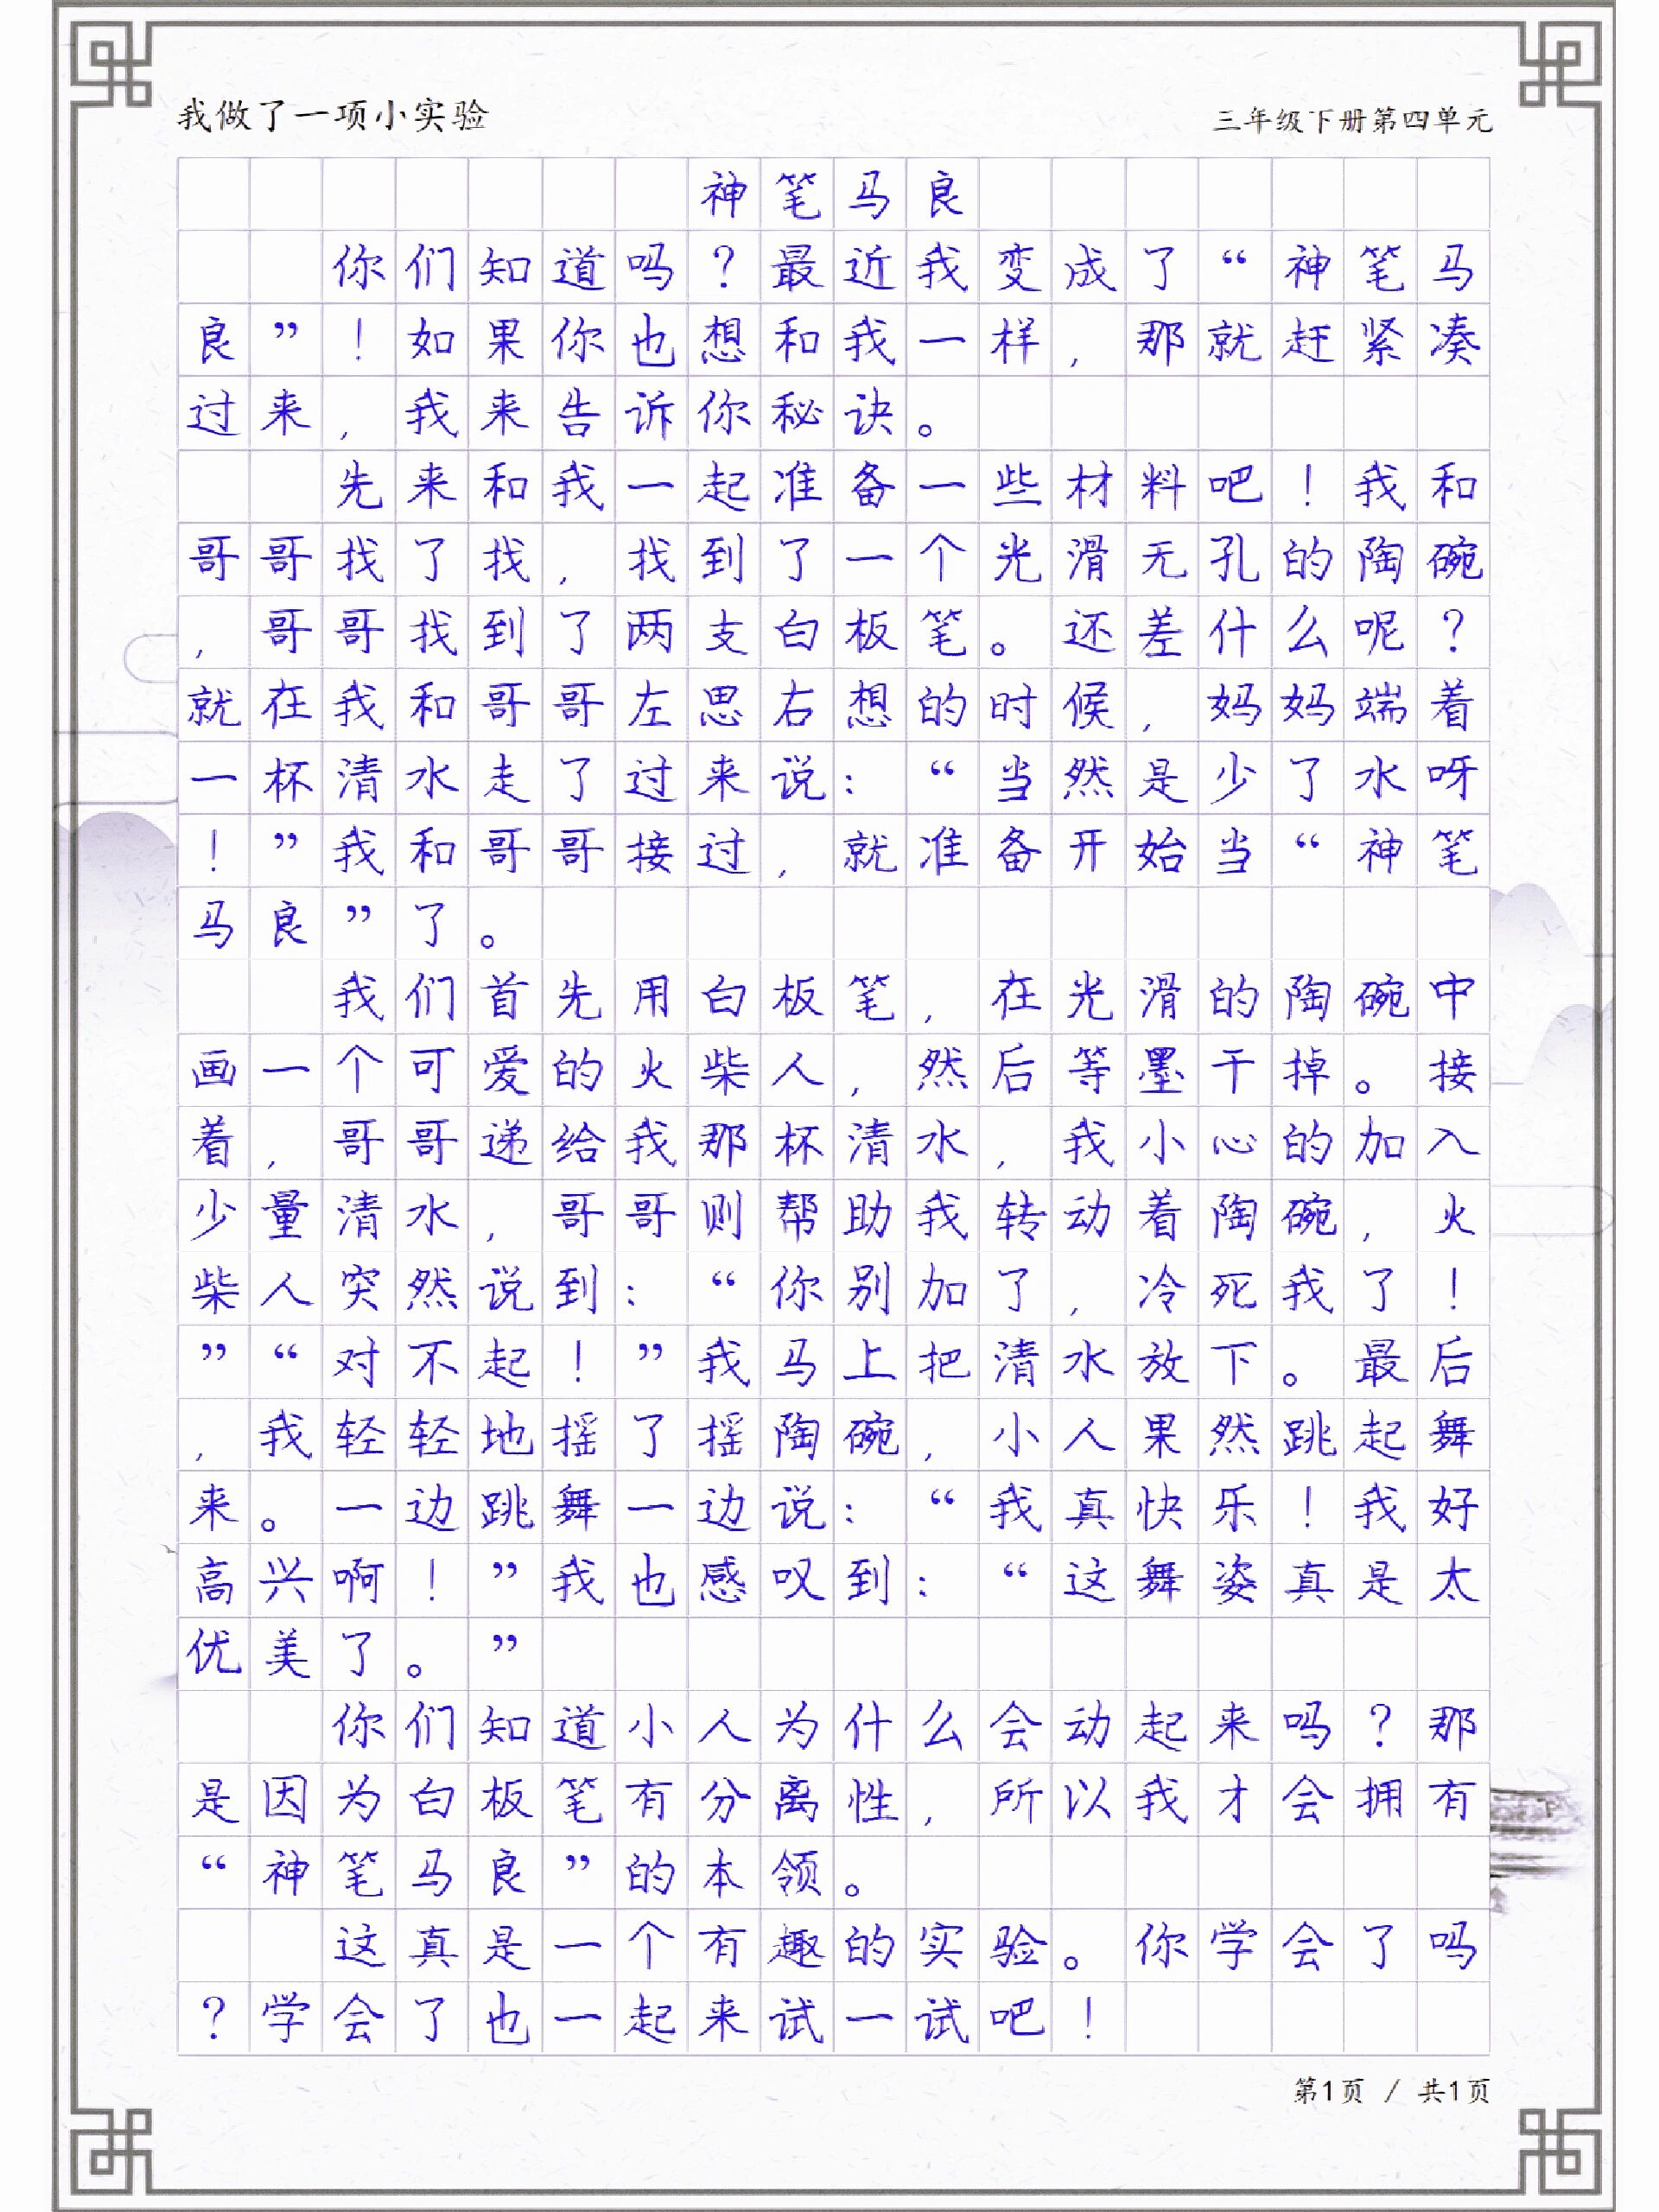 我做了一项小实验
三年级下册第四单元
神笔马良
你们知道吗？最近我变成了“神笔马
良”！如果你也想和我一样，那就赶紧凑
过来，我来告诉你秘诀。
先来和我一起准备一些材料吧！我和
哥哥找了找，找到了一个光滑无孔的陶碗
，哥哥找到了两支白板笔。还差什么呢？
就在我和哥哥左思右想的时候，妈妈端着
一杯清水走了过来说：“当然是少了水呀
！”我和哥哥接过，就准备开始当“神笔
马良”了。
我们首先用白板笔，在光滑的陶碗中
画一个可爱的火柴人，然后等墨干掉。接
着，哥哥递给我那杯清水，我小心的加入
少量清水，哥哥则帮助我转动着陶碗，火
柴人突然说到：“你别加了，冷死我了！
”“对不起！”我马上把清水放下。最后
，我轻轻地摇了摇陶碗，小人果然跳起舞
来。一边跳舞一边说：“我真快乐！我好
高兴啊！”我也感叹到：“这舞姿真是太
优美了。”
你们知道小人为什么会动起来吗？那
是因为白板笔有分离性，所以我才会拥有
“神笔马良”的本领。
这真是一个有趣的实验。你学会了吗
？学会了也一起来试一试吧！
第1页 / 共1页